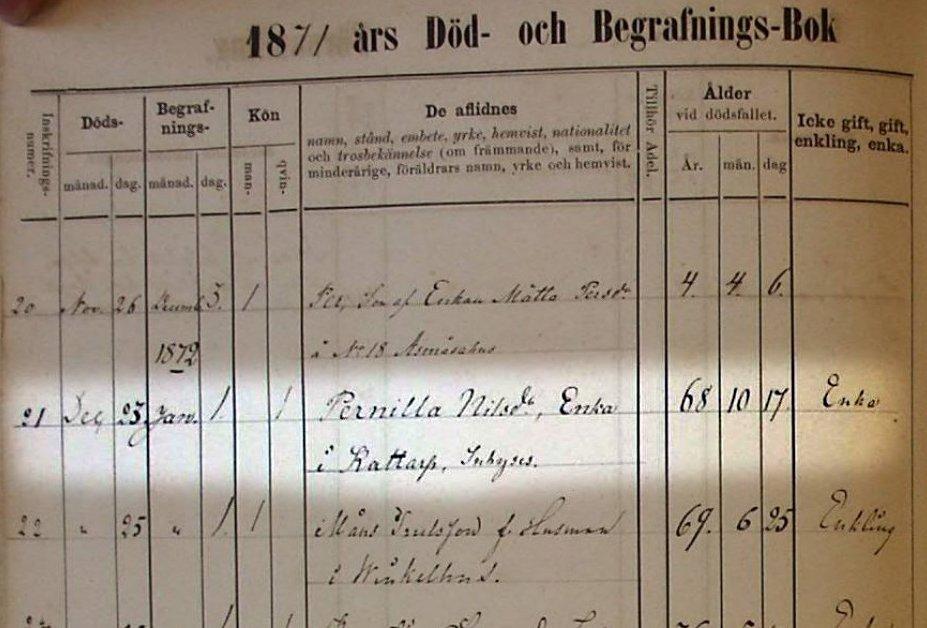 1871 års Död- och Begrafnings-Bok
Inskrifnings-
numer.
Döds-
månad. dag.
Begraf-
nings-
månad. dag.
Kön
man- qvin-
De aflidnes
namn, stånd, embete, yrke, hemvist, nationalitet
och trosbekännelse (om främmande), samt, för
minderårige, föräldrars namn, yrke och hemvist.
Tillhör Adel.
Ålder
vid dödsfallet.
År. mån. dag
Icke gift, gift,
enkling, enka.
20 Nov. 26 3. 1 Son af Enkan Persdr 4. 4. 6.
1872 å No 18
21 Dec 23 Jan. 1 1 Pernilla Nilsdr, Enka 68 10 17. Enka
i Kattarp, Inhyses.
22 " 25 " 1. 1 Måns Trulsson f. Husman 69. 6 25 Enkling
i Winkelhus.